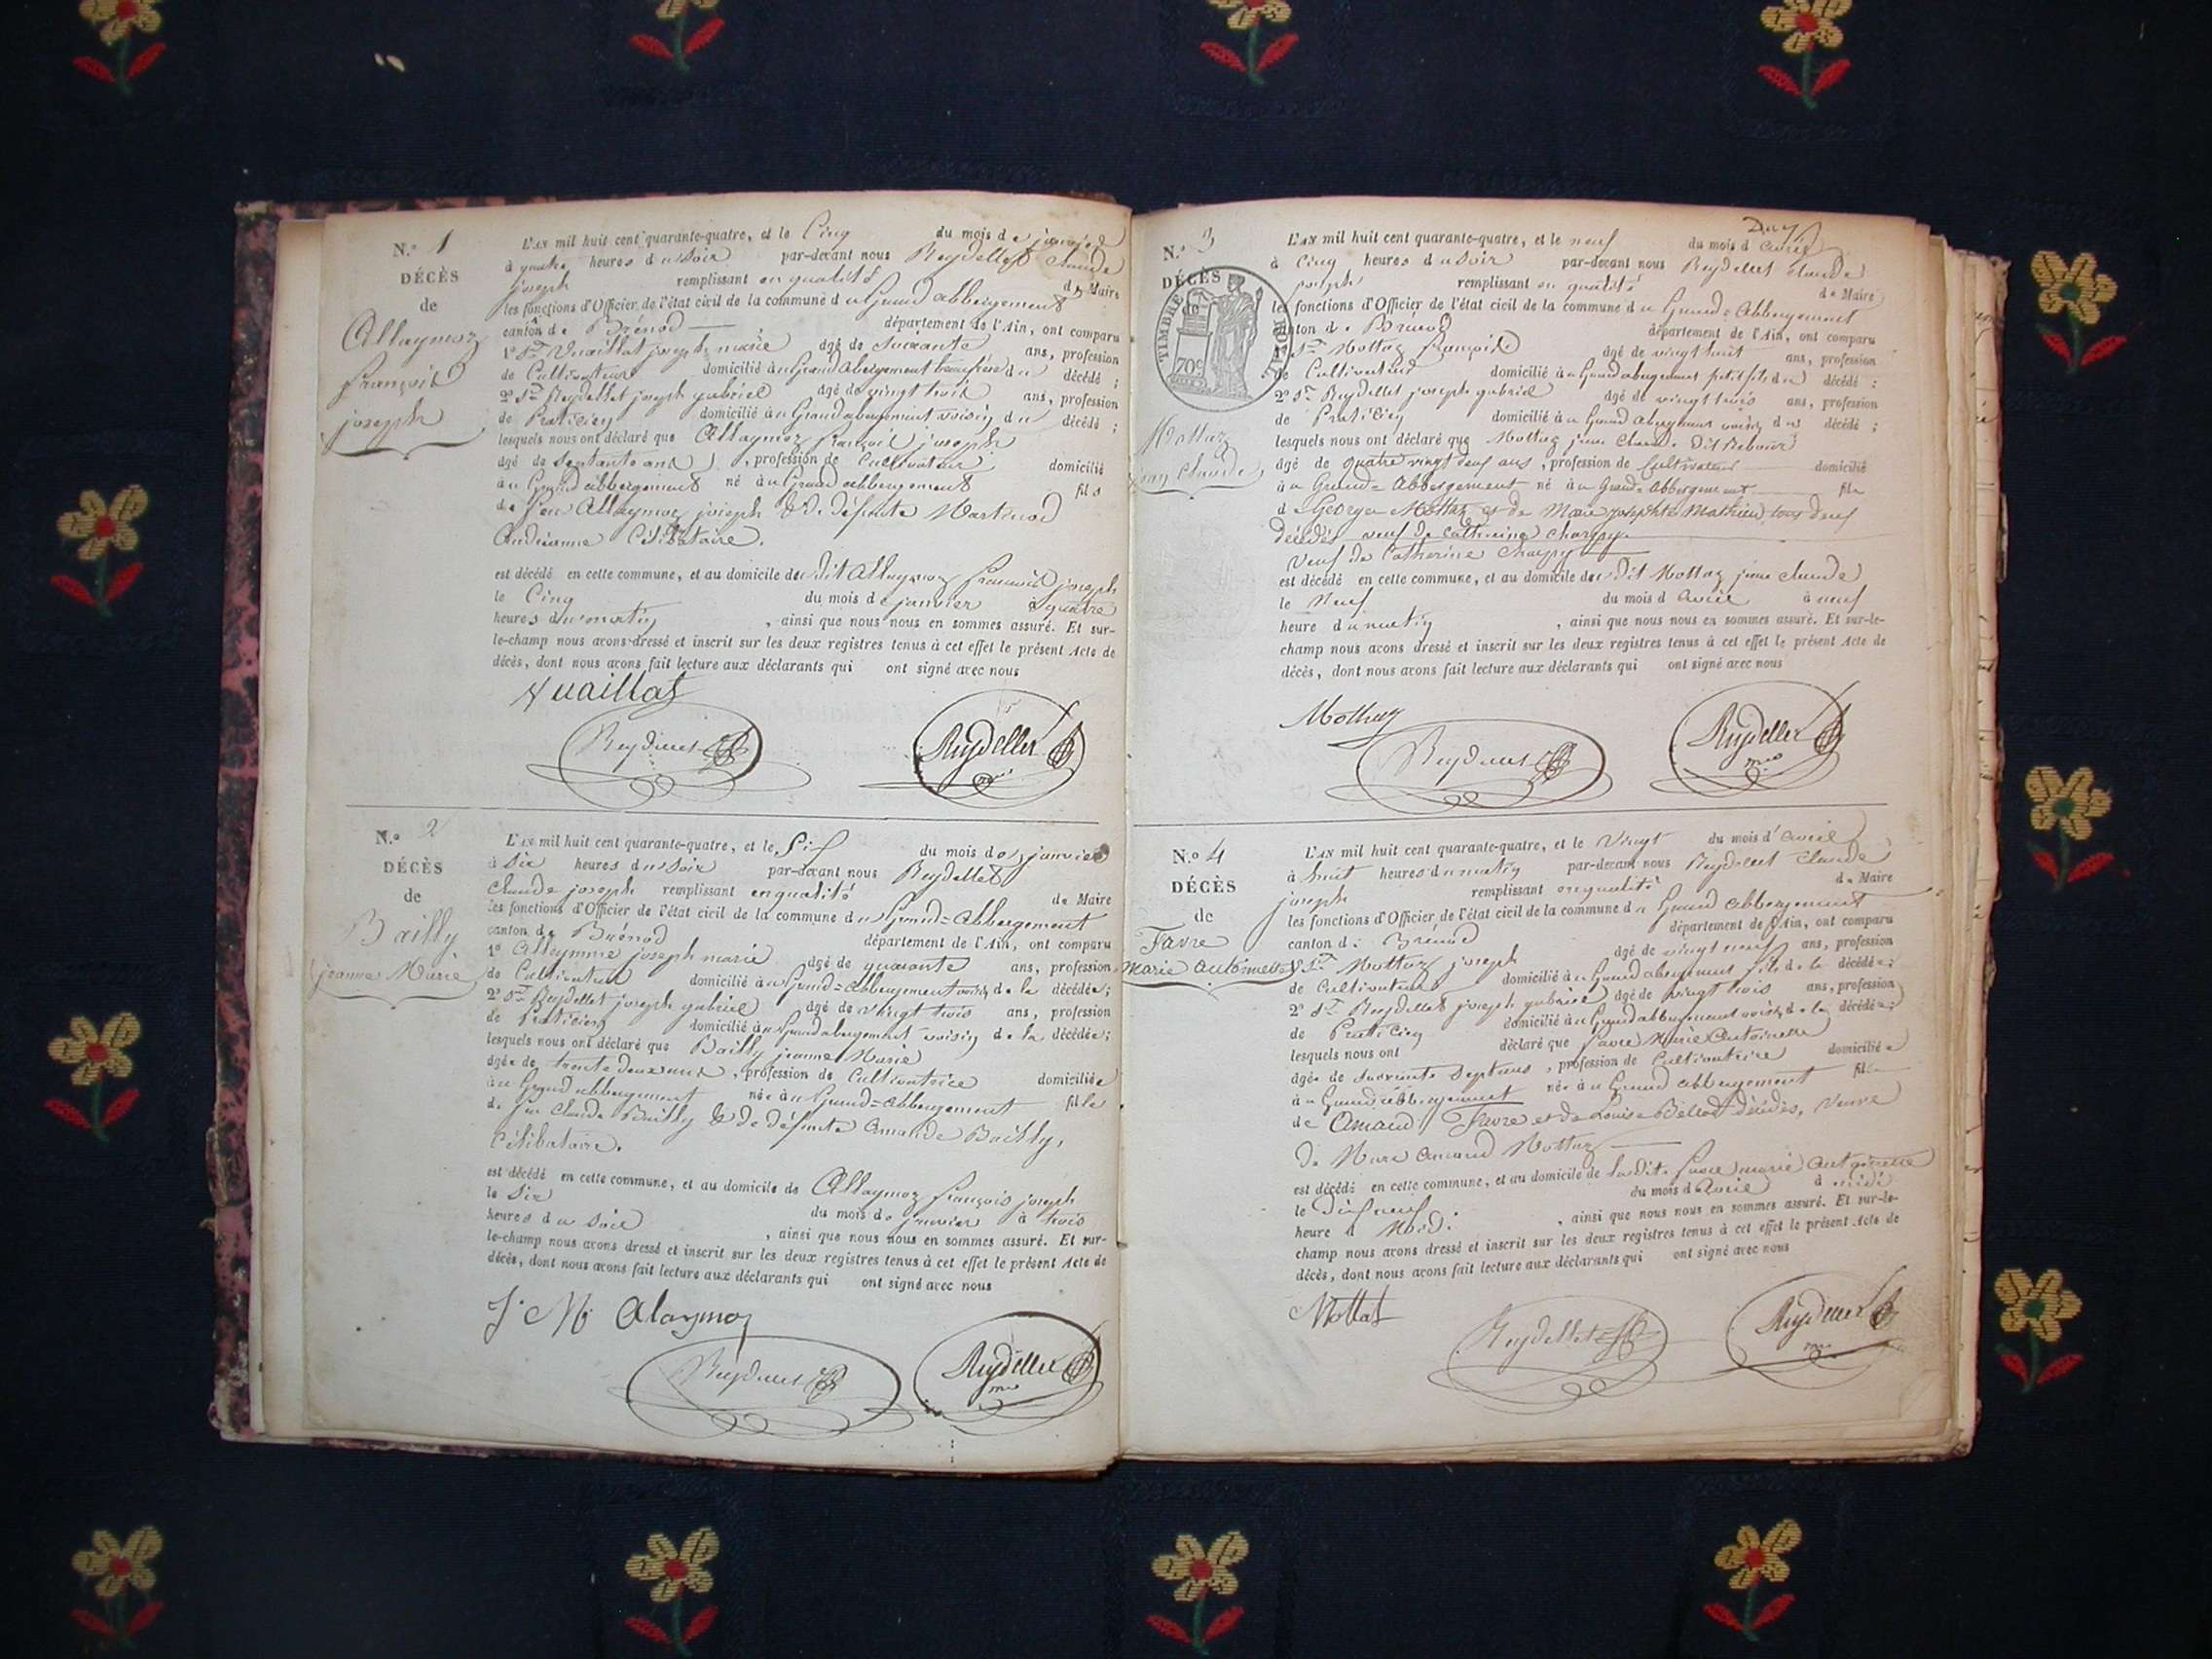 N.° 1
DÉCÈS
de
Allaymoz
françois
joseph
L'AN mil huit cent quarante-quatre, et le Cinq du mois de janvier
à quatre heures du soir par-devant nous Reydellet Claude
joseph remplissant en qualité de Maire
les fonctions d'Officier de l'état civil de la commune du Grand abbergement
canton de Brénod département de l'Ain, ont comparu
1° Sr Vuaillat joseph marie âgé de soixante ans, profession
de Cultivateur domicilié au Grand abergement beau frère du décédé ;
2° Sr Reydellet joseph gabriel âgé de vingt trois ans, profession
de Praticien domicilié au Grand abergement voisin du décédé ;
lesquels nous ont déclaré que Allaymoz françois joseph
âgé de septante ans, profession de Cultivateur domicilié
au Grand abbergement né au Grand abbergement fils
de feu Allaymoz joseph & de défunte Martinod
Andréanne Célibataire.
est décédé en cette commune, et au domicile du dit Allaymoz françois joseph
le Cinq du mois de janvier à quatre
heures du matin, ainsi que nous nous en sommes assuré. Et sur-
le-champ nous avons dressé et inscrit sur les deux registres tenus à cet effet le présent Acte de
décès, dont nous avons fait lecture aux déclarants qui ont signé avec nous
Vuaillat
Reydellet Reydellet
N.° 2
DÉCÈS
de
Bailly
jeanne Marie
L'AN mil huit cent quarante-quatre, et le Six du mois de janvier
à six heures du soir par-devant nous Reydellet
Claude joseph remplissant en qualité de Maire
les fonctions d'Officier de l'état civil de la commune du Grand=abbergement
canton de Brénod département de l'Ain, ont comparu
1° joseph marie âgé de quarante ans, profession
de Cultivateur domicilié au Grand=abbergement voisin de la décédée ;
2° Sr Reydellet joseph gabriel âgé de vingt trois ans, profession
de Praticien domicilié au Grand abergement voisin de la décédée ;
lesquels nous ont déclaré que Bailly jeanne Marie
âgée de trente deux ans, profession de Cultivatrice domiciliée
au Grand abbergement née au Grand=abbergement fille
de feu Claude Bailly & de défunte Bailly,
Célibataire.
est décédé en cette commune, et au domicile de Allaymoz françois joseph
le Six du mois de janvier à trois
heures du soir, ainsi que nous nous en sommes assuré. Et sur-
le-champ nous avons dressé et inscrit sur les deux registres tenus à cet effet le présent Acte de
décès, dont nous avons fait lecture aux déclarants qui ont signé avec nous
J. M. Alaymoz
Reydellet Reydellet
N.° 3
DÉCÈS
TIMBRE
70c
Mottaz
jean Claude
L'AN mil huit cent quarante-quatre, et le neuf du mois d'avril
à cinq heures du soir par-devant nous Reydellet Claude
joseph remplissant en qualité de Maire
les fonctions d'Officier de l'état civil de la commune du Grand=Abbergement
canton de Brénod département de l'Ain, ont comparu
Sr Mottaz françois âgé de vingt huit ans, profession
de Cultivateur domicilié au Grand abergement petit fils du décédé ;
2° Sr Reydellet joseph gabriel âgé de vingt trois ans, profession
de Praticien domicilié au Grand abergement voisin du décédé ;
lesquels nous ont déclaré que Mottaz jean Claude dit
âgé de quatre vingt deux ans, profession de Cultivateur domicilié
au Grand=Abbergement né au Grand=Abbergement fils
de George Mottaz et de Marie josephte Mathieu, tous deux
décédés veuf de Catherine Charpy
Veuf de Catherine Charpy
est décédé en cette commune, et au domicile du dit Mottaz jean claude
le Neuf du mois d'avril à neuf
heure du matin, ainsi que nous nous en sommes assuré. Et sur-le-
champ nous avons dressé et inscrit sur les deux registres tenus à cet effet le présent Acte de
décès, dont nous avons fait lecture aux déclarants qui ont signé avec nous
Mottaz
Reydellet Reydellet
N.° 4
DÉCÈS
de
Favre
Marie Antoinette
L'AN mil huit cent quarante-quatre, et le Vingt du mois d'avril
à huit heures du matin par-devant nous Reydellet Claude
joseph remplissant en qualité de Maire
les fonctions d'Officier de l'état civil de la commune du Grand abbergement
canton de Brénod département de l'Ain, ont comparu
Sr Mottaz joseph âgé de vingt neuf ans, profession
de Cultivateur domicilié au Grand abergement fils de la décédée ;
2° Sr Reydellet joseph gabriel âgé de vingt trois ans, profession
de Praticien domicilié au Grand abbergement voisin de la décédée ;
lesquels nous ont déclaré que favre Marie Antoinette
âgée de soixante sept ans, profession de Cultivatrice domiciliée
au Grand abbergement née au Grand abbergement fille
de Amand Favre et de Louise Bellod décédés, Veuve
de Marc amand Mottaz
est décédé en cette commune, et au domicile de la dite favre marie antoinette
le Dix neuf du mois d'Avril à midi
heure à Midi, ainsi que nous nous en sommes assuré. Et sur-le-
champ nous avons dressé et inscrit sur les deux registres tenus à cet effet le présent Acte de
décès, dont nous avons fait lecture aux déclarants qui ont signé avec nous
Mottat
Reydellet Reydellet